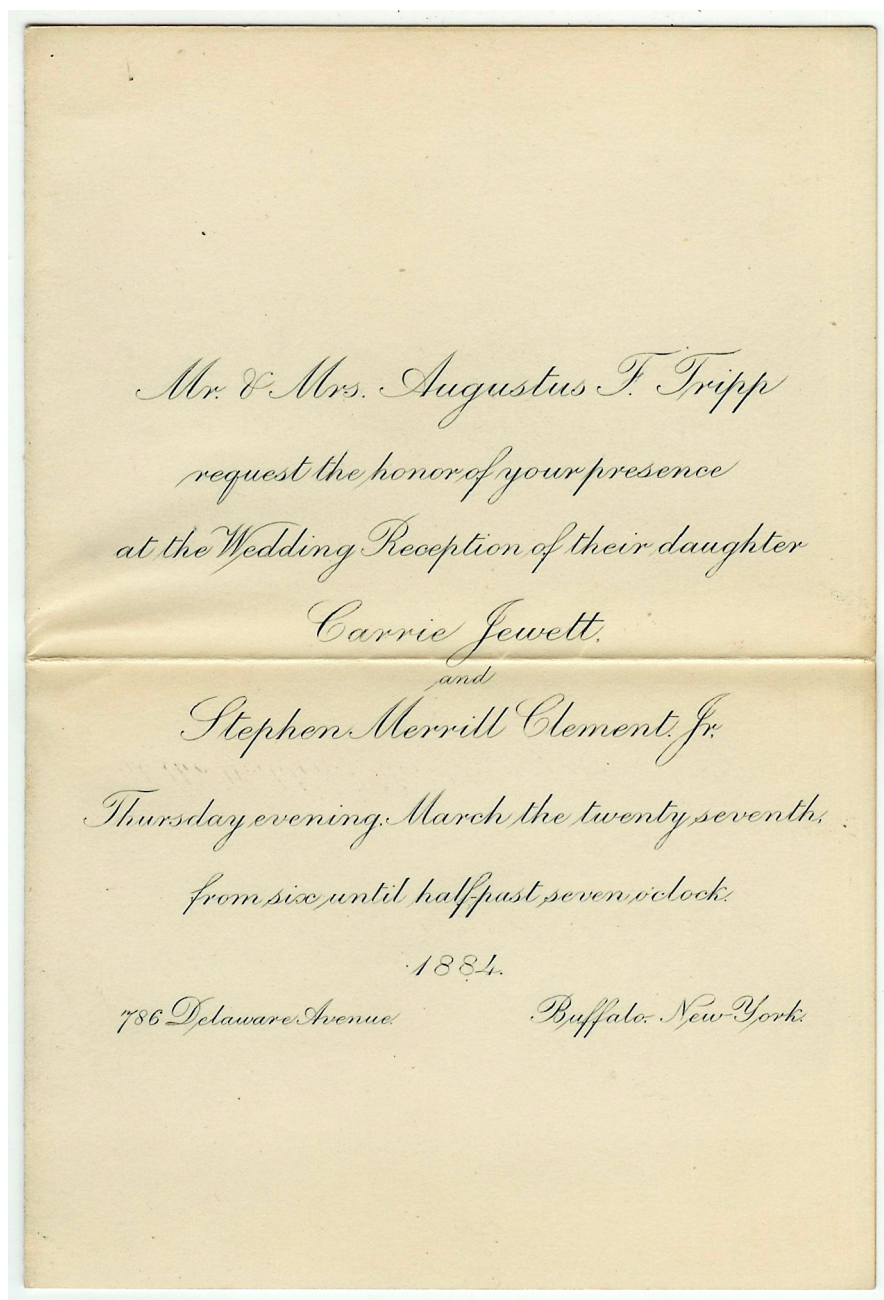 Mr. & Mrs. Augustus F. Tripp
request the honor of your presence
at the Wedding Reception of their daughter
Carrie Jewett,
and
Stephen Merrill Clement, Jr.
Thursday evening, March the twenty seventh,
from six until half-past seven o'clock.
1884.
786 Delaware Avenue. Buffalo- New-York.